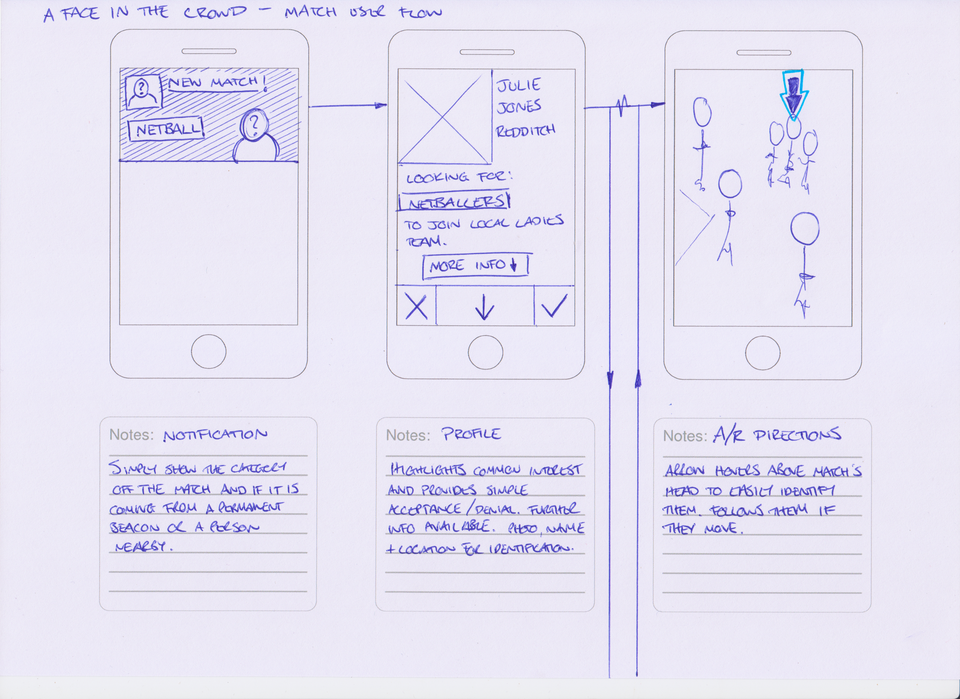 A FACE IN THE CROWD - MATCH USER FLOW
NEW MATCH!
?
NETBALL
?
JULIE
JONES
REDDITCH
LOOKING FOR:
NETBALLERS
TO JOIN LOCAL LADIES
TEAM.
MORE INFO ↓
X ↓ ✓
Notes: NOTIFICATION
SIMPLY SHOW THE CATEGORY
OFF THE MATCH AND IF IT IS
COMING FROM A PERMANENT
BEACON OR A PERSON
NEARBY.
Notes: PROFILE
HIGHLIGHTS COMMON INTEREST
AND PROVIDES SIMPLE
ACCEPTANCE/DENIAL. FURTHER
INFO AVAILABLE. PHOTO, NAME
+ LOCATION FOR IDENTIFICATION.
Notes: A/R DIRECTIONS
ARROW HOVERS ABOVE MATCH'S
HEAD TO EASILY IDENTIFY
THEM. FOLLOWS THEM IF
THEY MOVE.